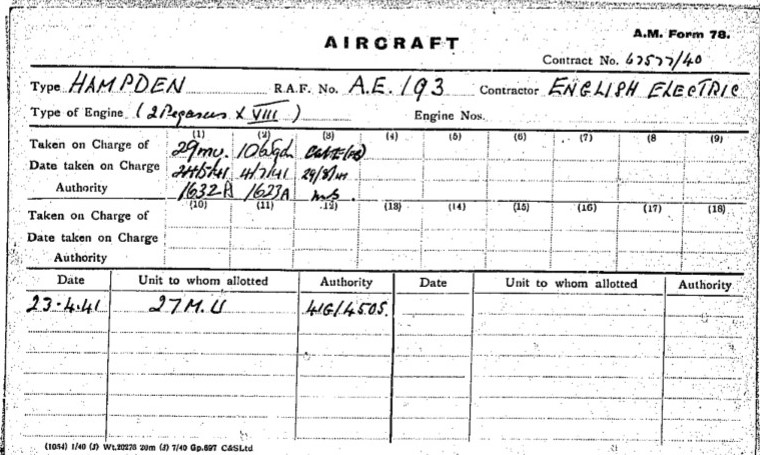 A.M. Form 78.
AIRCRAFT
Contract No. 67577/40
Type HAMPDEN R.A.F. No. A.E. 193 Contractor ENGLISH ELECTRIC
Type of Engine (2 Pegasus X VIII) Engine Nos.
(1) (2) (3) (4) (5) (6) (7) (8 (9)
Taken on Charge of 29 MU. 106 Sqd.
Date taken on Charge 24/5/41 4/7/41 29/8/41
Authority 1632A 1623A
(10) (11) (12) (13) (14) (15) (16) (17) (18)
Taken on Charge of
Date taken on Charge
Authority
Date Unit to whom allotted Authority Date Unit to whom allotted Authority
23.4.41 27 M.U 41G/4505.
(1054) 1/40 (3) Wt.20276 20m (3) 7/40 Gp.697 C&SLtd